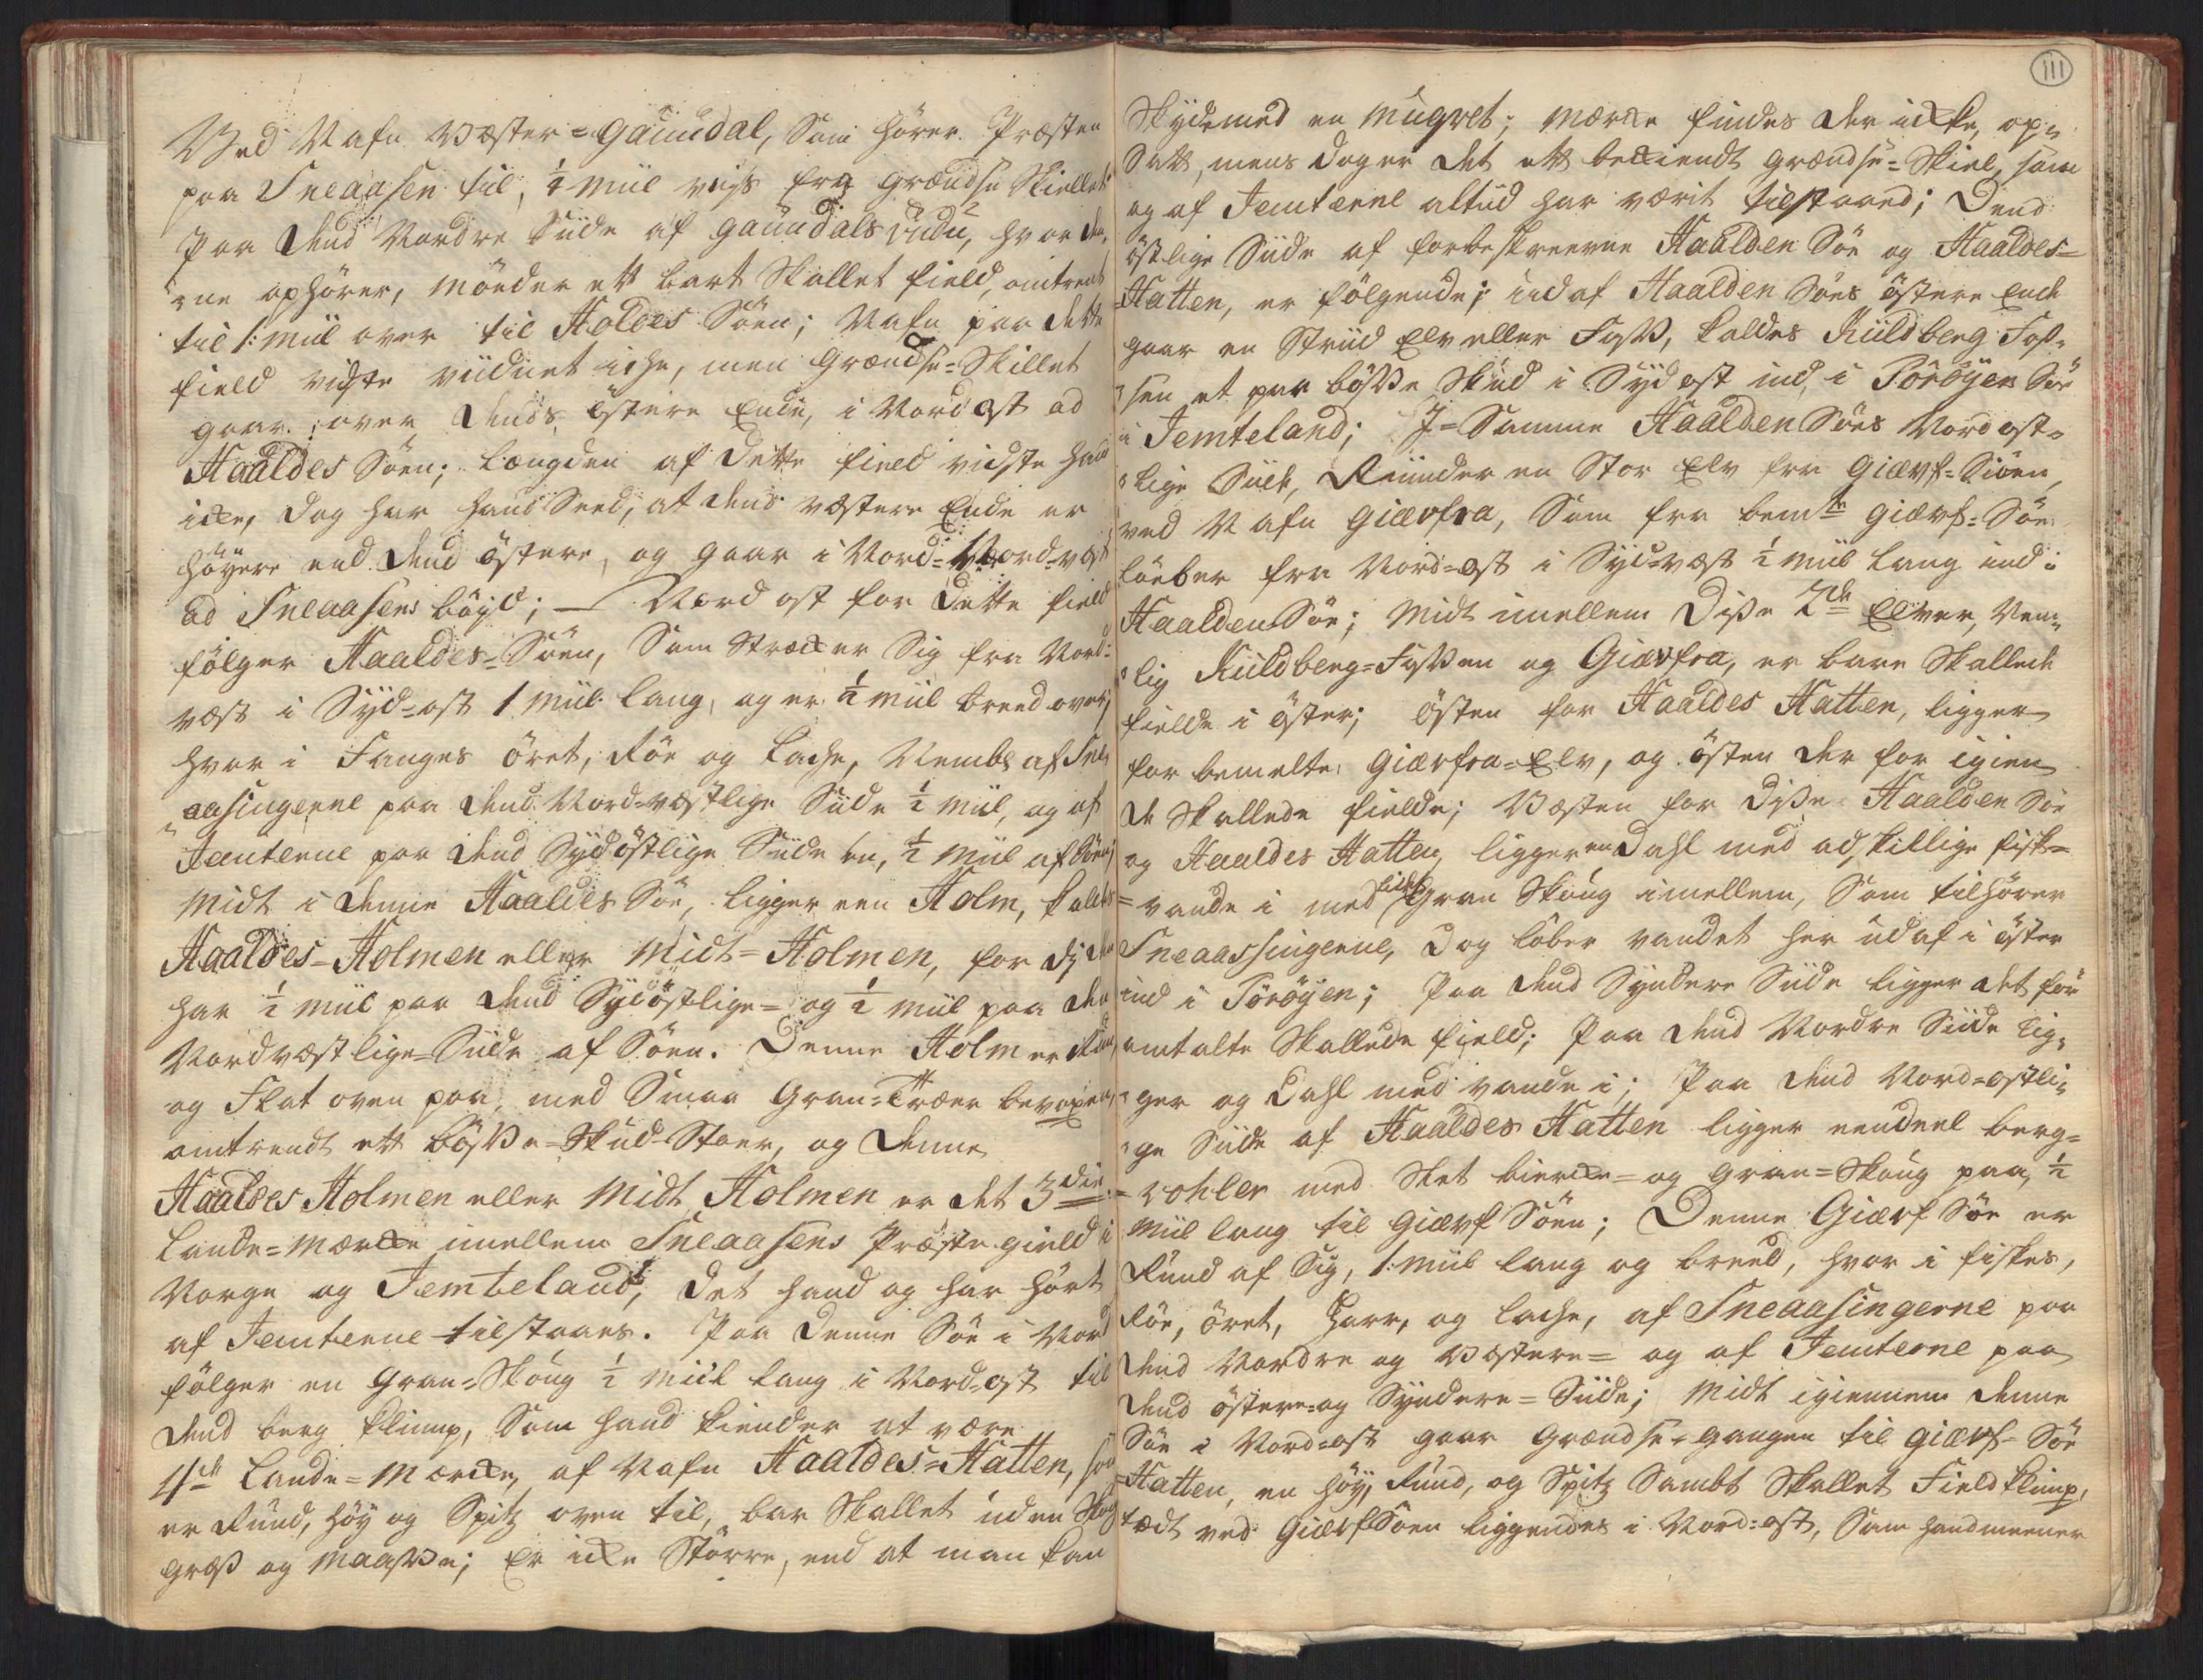 Ved Nafn Wæster=Gaundal, Som hører Præsten
paa Sneaasen til, ¼ Miil viss fra Grændse Skiellet
Paa dend Nordre Siide af Gaundals vidu, hvor
ophører, Mönder ett bart Skallet field, omtrent
til 1: Miil over til Holdes Söen; Nafn paa dette
field vidste viidnet iche, men Grændse=Skillet
gaar over dends östere Ende, i Nordost ad
Haaldes Söen; Længden af dette field vidste hand
icke, dog har hand Seed, at dends væstere Ende er
höyere end dend östere, og gaar i Nord=Nord=væst
ad Sneaasens böyd; — Nord ost for dette field
fölger Haaldes=Söen, Som Strecker Sig fra Nord=
væst i Syd=ost 1 Miil lang, og er ½ Miil breed over,
hvor i Fanges öret, Röe og Lache, Nembl af Sne,
aasingerne paa dend Nord=væstlige Siide ½ Miil, og af
Jemterne paa dend Sydöstlige Siide en, ½ Miil af Söen;
Midt i denne Haaldes Söe, ligger een Holm, kaldes
Haaldes=Holmen eller Midt=Holmen, for dj der
har ½ Miil paa dend Sydöstlige= og ½ Miil paa den
Nordvæstlige=Siide af Söen. Denne Holm er Rund
og Flat oven paa, med Smaa Gran=Træer bevoxen,
omtrendt ett bösse=Skud=Stoer, og denne
Haaldes Holmen eller Midt Holmen er det 3die
Lande=Mærcke imellem Sneaasens Præstegield i
Norge og Jemteland, det hand og har hört
af Jemterne tilstaaes. Paa denne Söe i Nord
fölger en Gran=Skoug ½ Miil lang i Nord=ost til
dend berg klimp, Som hand kiender at være
4de Lande=Mærcke, af Nafn Haaldes=Hatten, som
er Rund, höy og Spitz oven til, bar Skallet uden Skog
græs og Maasse; Er icke Större, end at man kan
111
Skyde med en Muqvet; Mærcke findes der icke, op=
Satt, mens dog er det ett bekiendt Grændse=Skiel, som
og af Jemterne altiid har værit tilstaaed; Dend
östlige Siide af forbeskreevne Haalden Söe og Haaldes=
=Hatten, er fölgende; ud af Haalden Söes östere Ende
gaar en Striid Elv eller Foss, kaldes Kuldberg Fos=
sen et par bösse Skud i Sydost ind, i Toröyen Söe
i Jemteland; I=Samme Haalden Söes Nordost=
lige Siide, Rinder en Stor Elv fra Giærf=Siöen,
ved Nafn Giærfsa, Som fra bemte Giærf=Söe
löeber fra Nord=ost i Syd=væst ½ Miil lang ind i
Haalden Söe; Midt imellem disse 2de Elver, Nem=
lig Kuldberg=Fossen og Giærfsa, er bare Skallede
fielde i Öster; Östen for Haaldes Hatten, ligger
forbemelte Giærfsa=Elv, og östen der for igien
de Skallede fielde; Wæsten for disse Haalden Söe
og Haaldes Hatten, ligger en Dahl med adskillige fisk=
=vande i med lidet Gran Skoug imellem, Som tilhörer
Sneaassingerne, dog löber vandet her ud af i öster
ind i Toröyen; Paa dend Syndere Siide ligger det för
omtalte Skallede field; Paa dend Nordre Siide lig=
ger og Dahl med vande i; Paa dend Nord=ostli=
ge Siide af Haaldes Hatten ligger eendeel berg=
=rohler med Slet biercke= og Gran=Skoug paa, ½
Miil lang til Giærf Söen; Denne Giærf Söe er
Rund af Sig, 1: Miil lang og breed, hvor i fiskes,
Röe, öret, Harr, og Lache, af Sneaasingerne paa
dend Nordre og Wæstere= og af Jemterne paa
dend östere= og Syndere=Siide; Midt igiennem denne
Söe i Nord=ost gaar Grændse=gangen til Giærf=Söe
=Hatten, en höy, Rund, og Spitz Sambt Skallet Field klimp,
tædt ved Giærf Söen liggendes i Nord=ost, Som hand meener